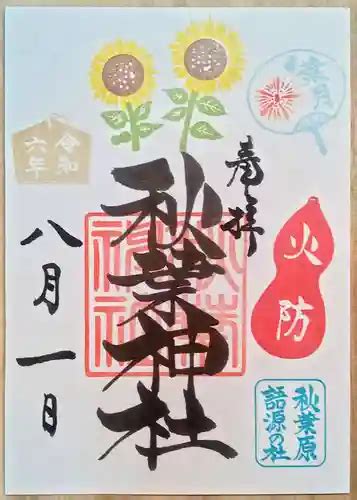 奉拝
葉月
火防
秋葉原
語源の社
秋葉神社
令和
六年
八月一日